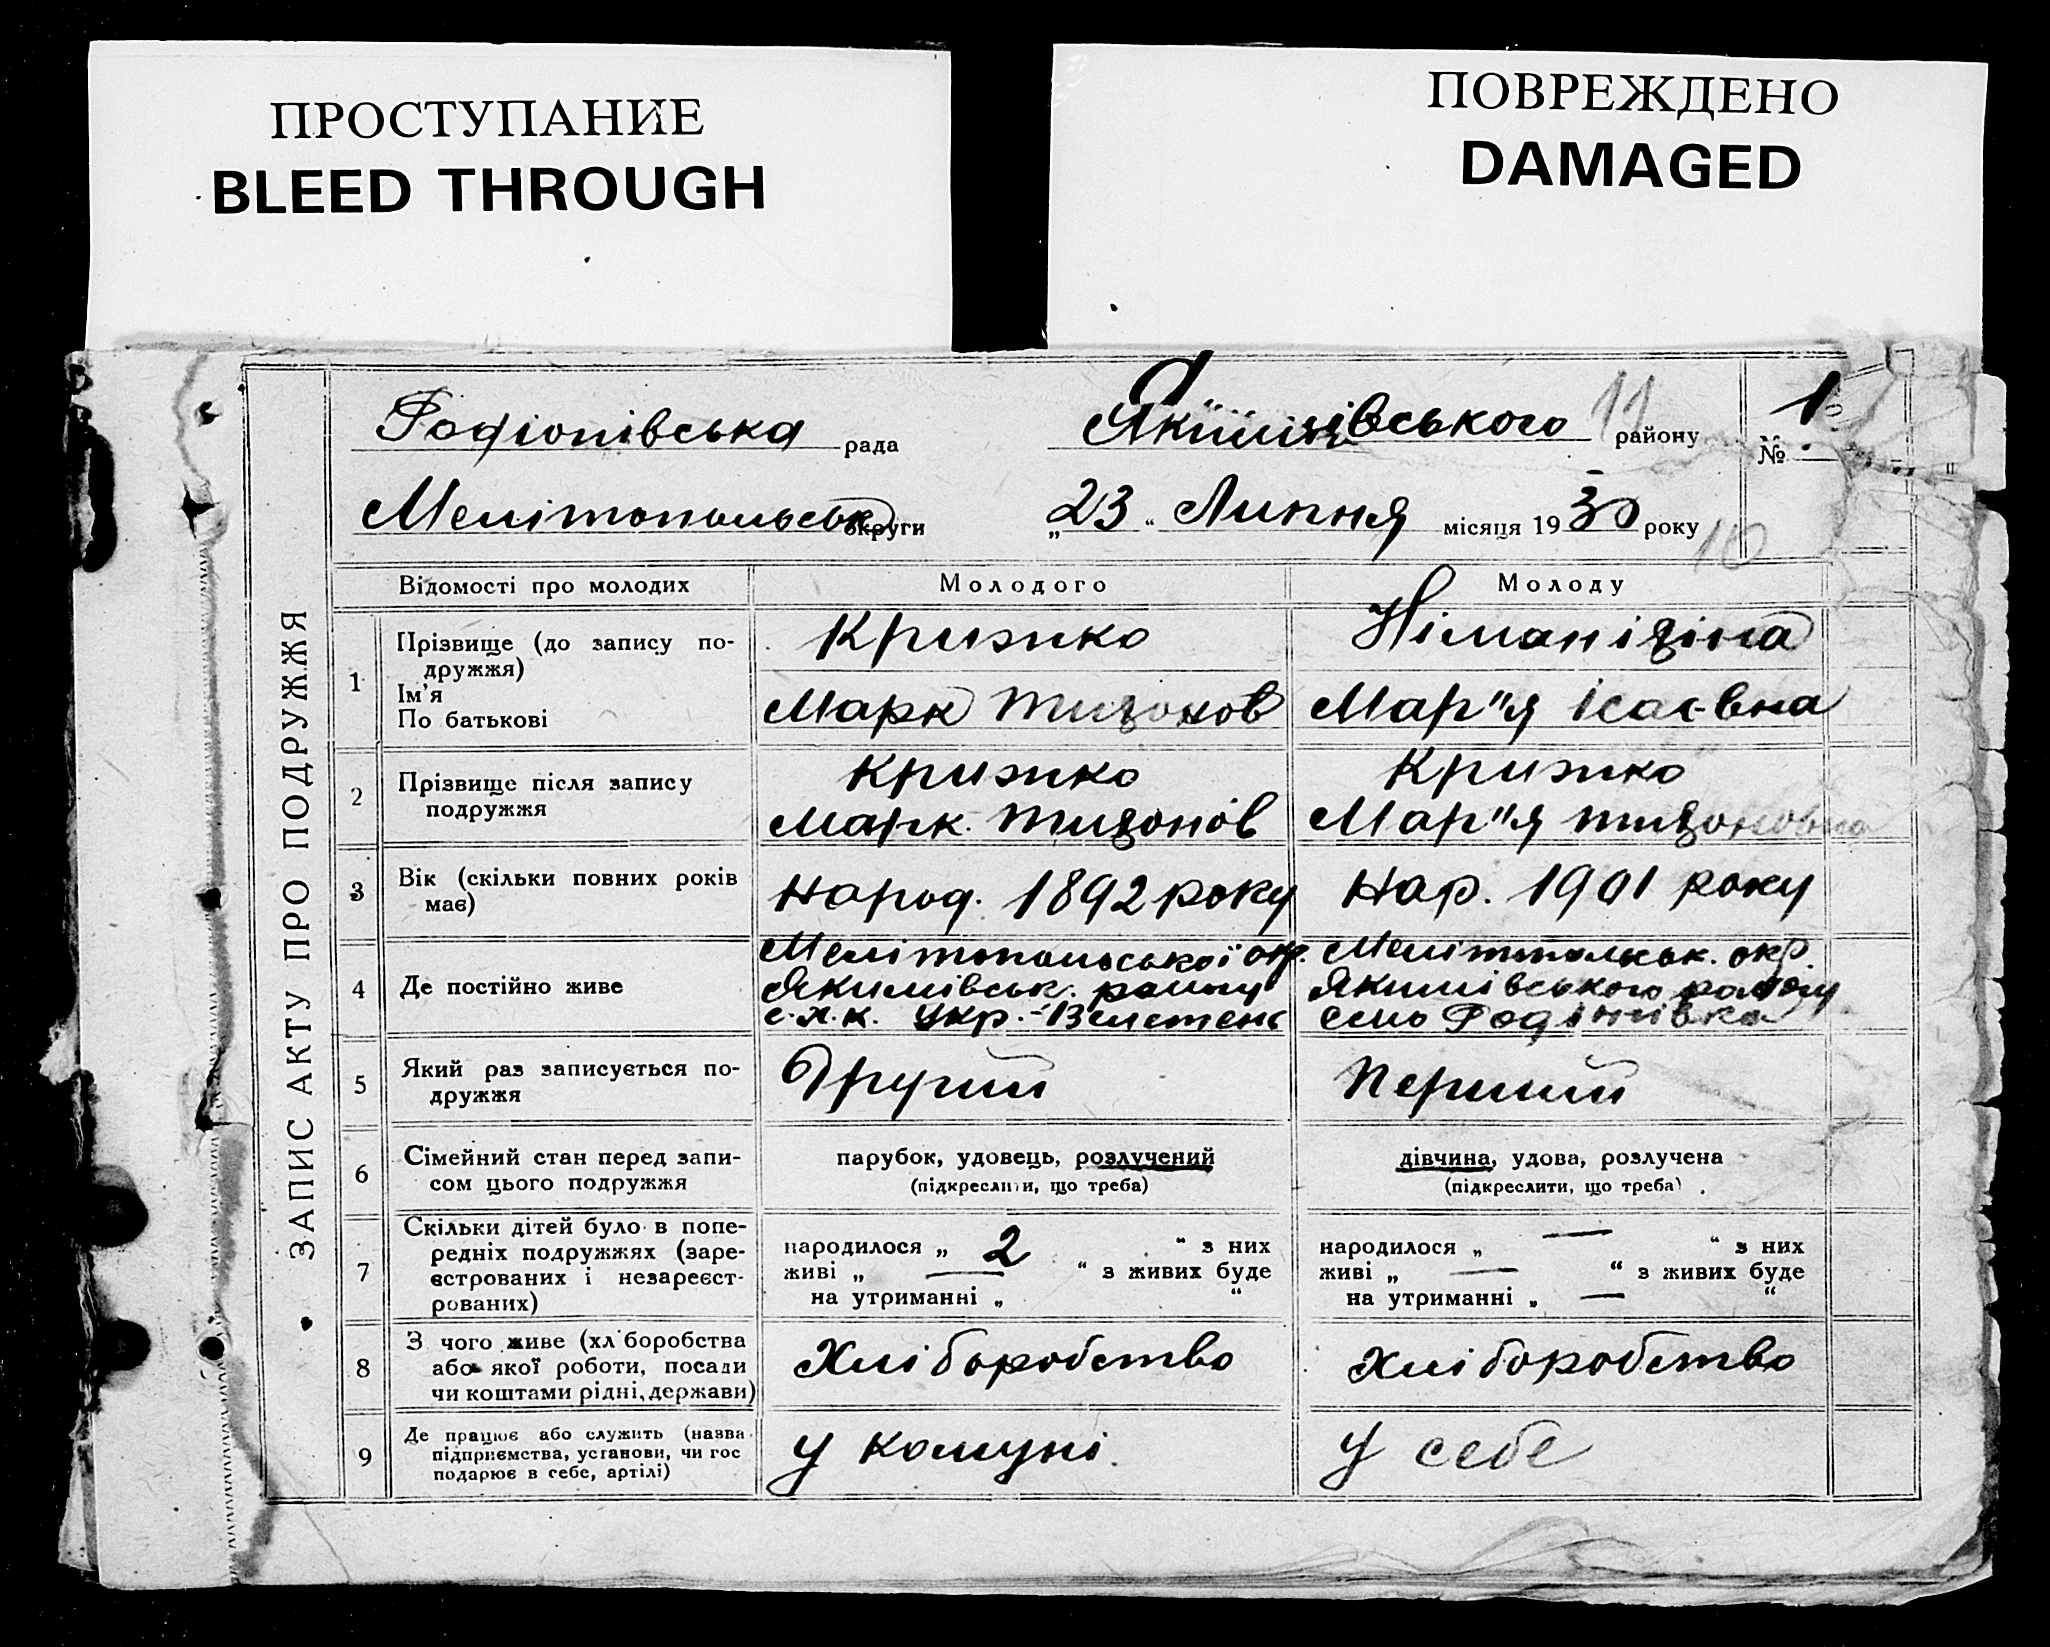 ПРОСТУПАНИЕ
BLEED THROUGH
ПОВРЕЖДЕНО
DAMAGED
ЗАПИС АКТУ ПРО ПОДРУЖЖЯ
Родіонівська рада Якимівського району 11 № 1
Мелітопольськ округи „23“ Липня місяця 1930 року 10
Відомості про молодих Молодого Молоду
1 Прізвище (до запису по-
дружжя)
Ім’я
По батькові
Крижко
Марк Тихонов
Мар"я Ісаєвна
2 Прізвище після запису
подружжя
Крижко
Марк Тихонов
Крижко
Мар"я Тихоновна
3 Вік (скільки повних років
має)
Народ. 1892 року
Нар. 1901 року
4 Де постійно живе
Мелітопольської окр.
Якимівськ. району
с.х.к. Укр.-Велетень
Мелітопольськ. окр.
Якимівського району
Село Родінівка
5 Який раз записується по-
дружжя
Другий
Перший
6 Сімейний стан перед запи-
сом цього подружжя
парубок, удовець, розлучений
(підкреслити, що треба)
дівчина, удова, розлучена
(підкреслити, що треба)
7 Скільки дітей було в попе-
редніх подружжях (заре-
єстрованих і незареєст-
рованих)
народилося „ 2 “ з них
живі „ — “ з живих буде
на утриманні „ “
народилося „ — “ з них
живі „ — “ з живих буде
на утриманні „ — “
8 З чого живе (хліборобства
або якої роботи, посади
чи коштами рідні, держави)
Хліборобство
Хліборобство
9 Де працює або служить (назва
підприємства, установи, чи гос
подарює в себе, артілі)
У комуні.
У себе